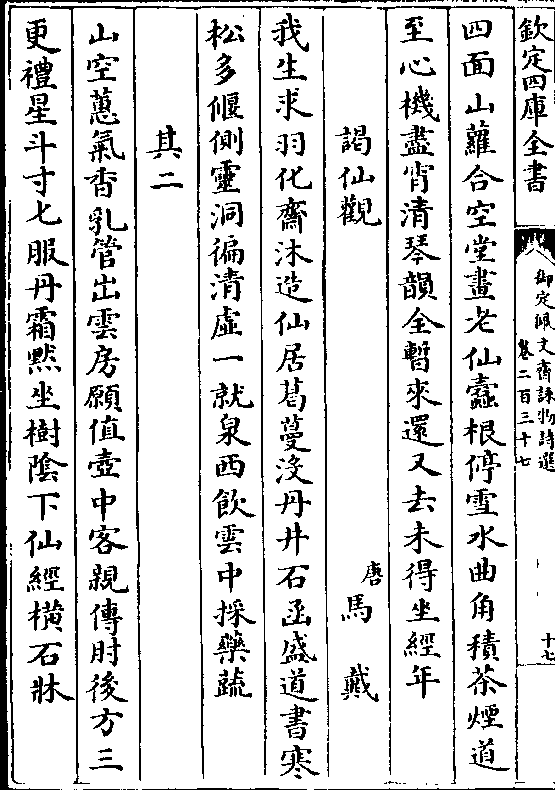 欽定四庫全書
御定佩文齋詠物詩選
卷二百三十七
十七
四面山蘿合空堂畫老仙蠧根停雪水曲角積茶煙道
至心機盡宵清琴韻全暫來還又去未得坐經年
謁仙觀
唐馬戴
我生求羽化齋沐造仙居葛蔓沒丹井石函盛道書寒
松多偃側靈洞徧清虛一就泉西飲雲中採藥蔬
其二
山空蕙氣香乳管出雲房願值壺中客親傳肘後方三
更禮星斗寸匕服丹霜默坐樹陰下仙經橫石牀